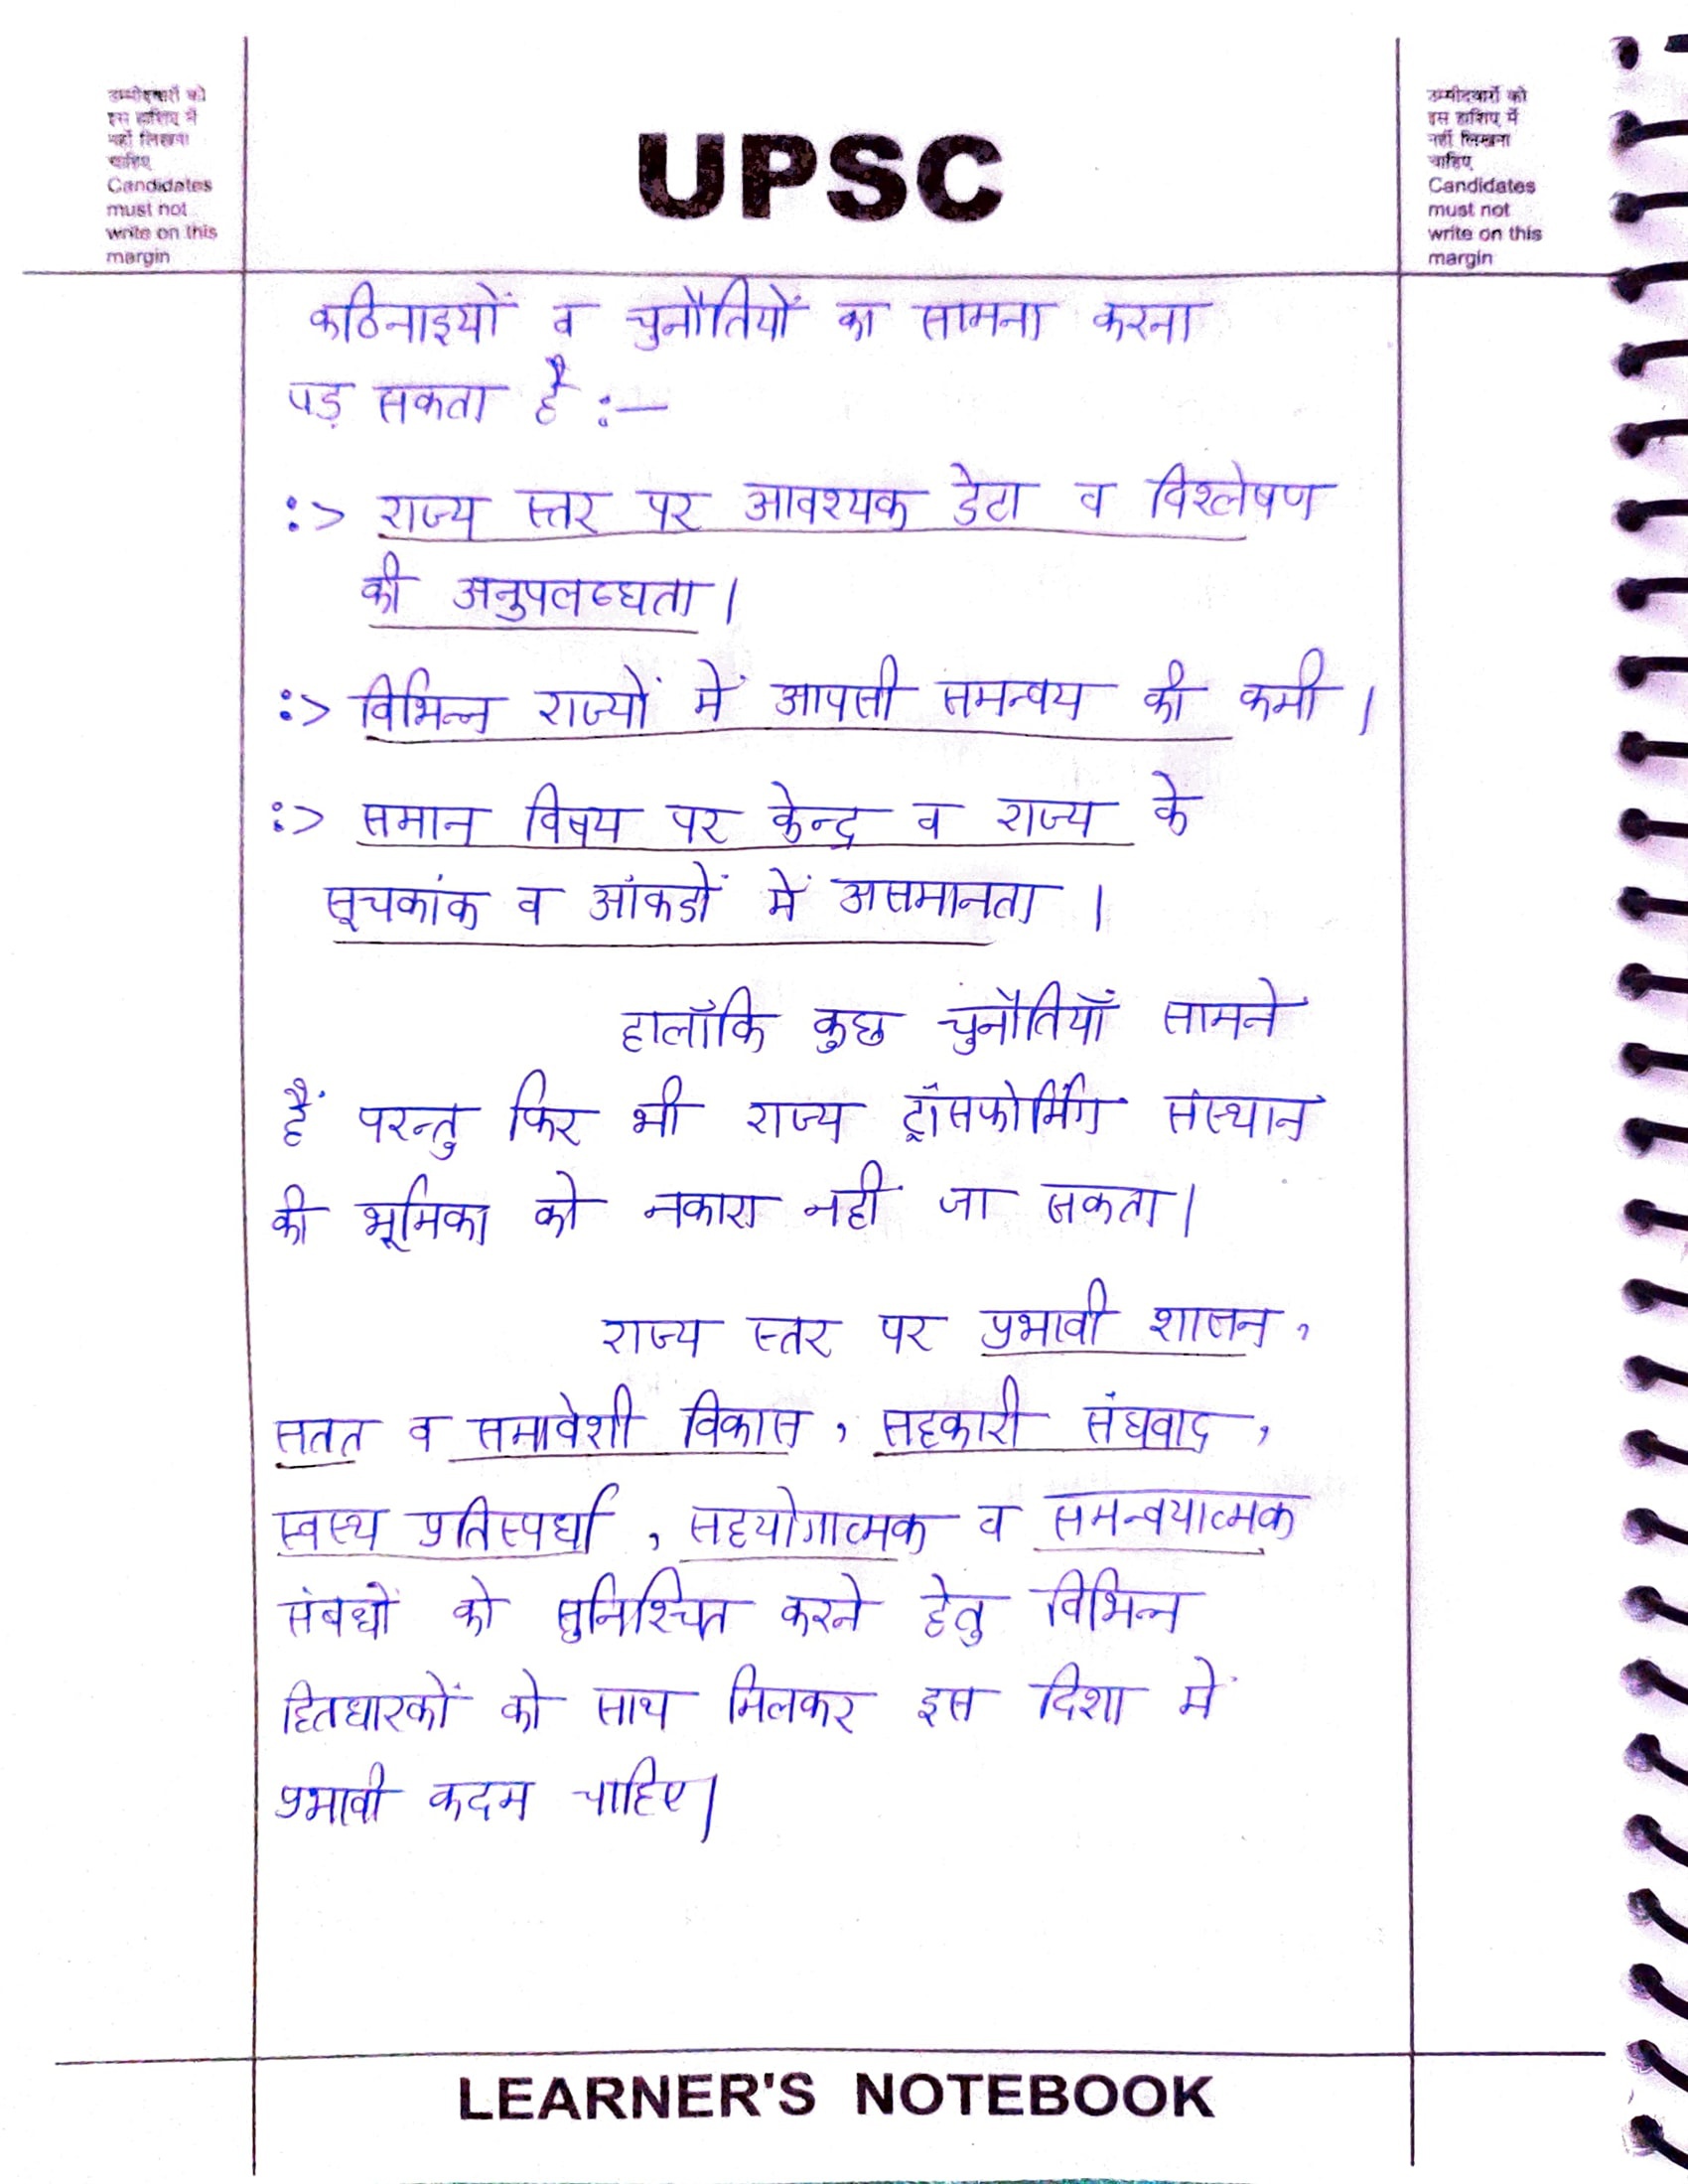 उम्मीदवारों को
इस हाशिए में
नहीं लिखना
चाहिए
Candidates
must not
write on this
margin
UPSC
उम्मीदवारों को
इस हाशिए में
नहीं लिखना
चाहिए
Candidates
must not
write on this
margin
कठिनाइयों व चुनौतियों का सामना करना
पड़ सकता है :—
:> राज्य स्तर पर आवश्यक डेटा व विश्लेषण
की अनुपलब्धता।
:> विभिन्न राज्यों में आपसी समन्वय की कमी।
:> समान विषय पर केन्द्र व राज्य के
सूचकांक व आंकडों में असमानता।
हालाँकि कुछ चुनौतियाँ सामने
हैं परन्तु फिर भी राज्य ट्राँसफोर्मिंग संस्थान
की भूमिका को नकारा नही जा सकता।
राज्य स्तर पर प्रभावी शासन,
सतत व समावेशी विकास, सहकारी संघवाद,
स्वस्थ प्रतिस्पर्धा, सहयोगात्मक व समन्वयात्मक
संबधों को सुनिश्चित करने हेतु विभिन्न
हितधारकों को साथ मिलकर इस दिशा में
प्रभावी कदम चाहिए।
LEARNER'S NOTEBOOK